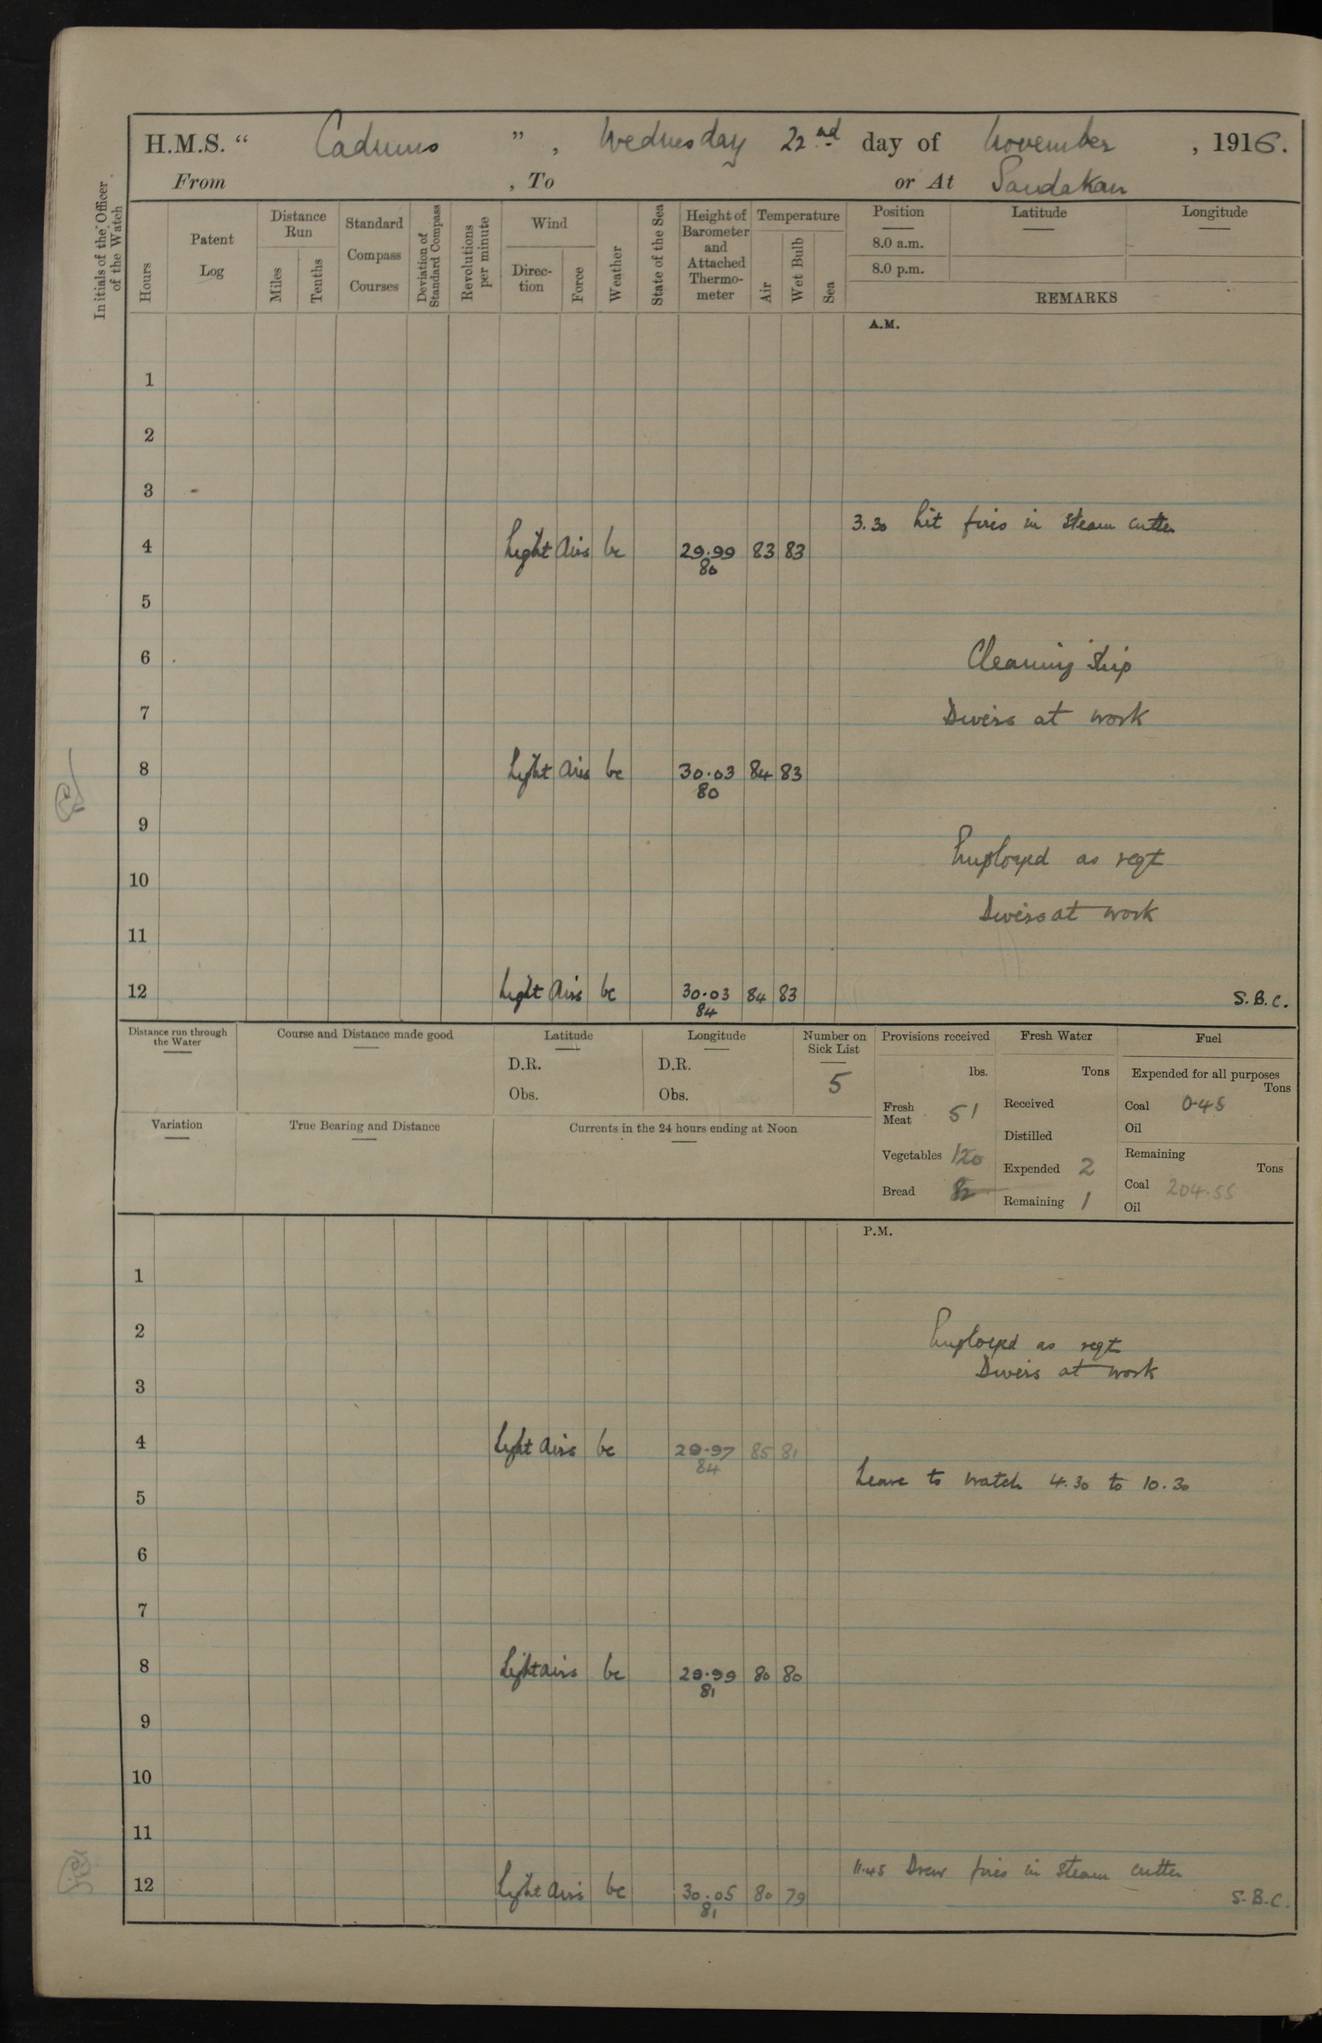 H.M.S. “ Cadmus ” , Wednesday 22nd day of November , 1916.
From , To or At Sandakan
Initials of the Officer of the Watch
Hours
Patent Log
Distance Run
Miles
Tenths
Standard Compass Courses
Deviation of Standard Compass
Revolutions per minute
Wind
Direction
Force
Weather
State of the Sea
Height of Barometer and Attached Thermometer
Temperature
Air
Wet Bulb
Sea
Position Latitude Longitude
8.0 a.m.
8.0 p.m.
REMARKS
A.M.
1
2
3
3.30 Lit fires in steam cutter
4 Light Airs bc 29.99 83 83
80
5
6 Cleaning Ship
7 Divers at work
8 Light Airs bc 30.03 84 83
80
9
Employed as reqt
10
Divers at work
11
12 Light Airs bc 30.03 84 83 S.B.C.
84
Distance run through the Water
Course and Distance made good
Latitude
D.R.
Obs.
Longitude
D.R.
Obs.
Number on Sick List
5
Provisions received
lbs.
Fresh Meat 51
Vegetables 120
Bread 82
Fresh Water
Tons
Received
Distilled
Expended 2
Remaining 1
Fuel
Expended for all purposes
Tons
Coal 0.45
Oil
Remaining
Tons
Coal 204.55
Oil
Variation
True Bearing and Distance
Currents in the 24 hours ending at Noon
P.M.
1
2 Employed as reqt
Divers at work
3
4 Light Airs bc 29.97 85 81
84
Leave to watch 4.30 to 10.30
5
6
7
8 Light airs bc 29.99 80 80
81
9
10
11
11.45 Drew fires in steam cutter
12 Light Airs bc 30.05 80 79 S.B.C.
81